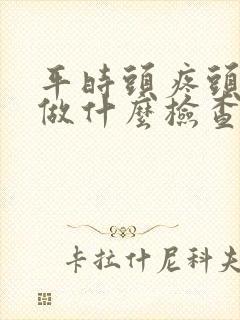 平時頭疼頭
做什麼檢查
卡拉什尼科夫